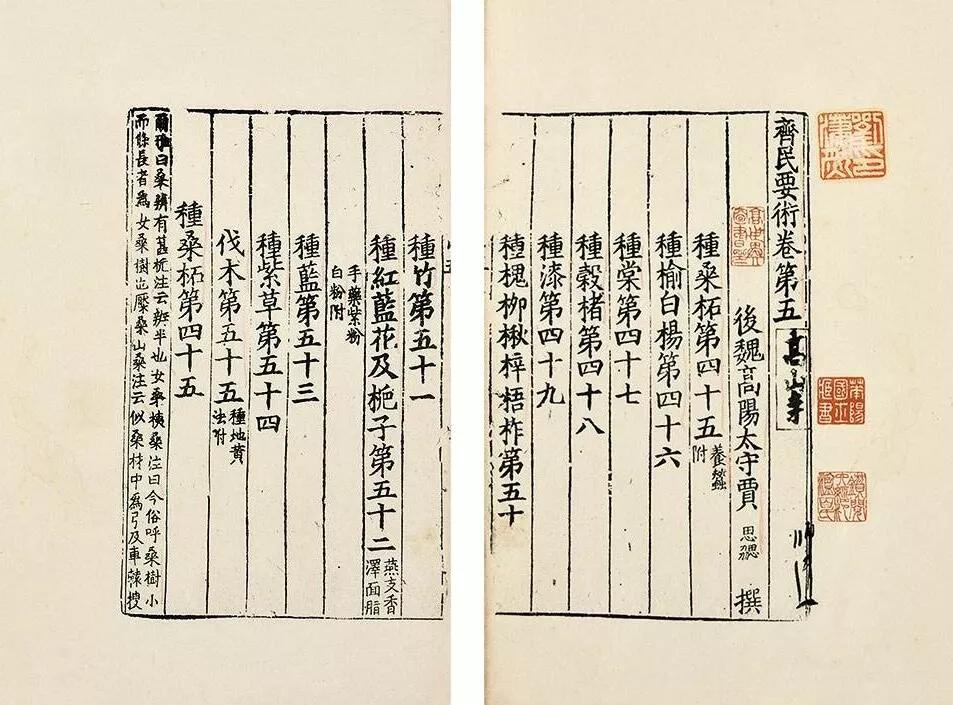 齊民要術卷第五
高山寺
後魏高陽太守賈 思勰 撰
種桑柘第四十五 養蠶附
種榆白楊第四十六
種棠第四十七
種榖楮第四十八
種漆第四十九
種槐柳楸梓梧柞第五十
種竹第五十一
種紅藍花及梔子第五十二 燕支香澤面脂
手藥紫粉白粉附
種藍第五十三
種紫草第五十四
伐木第五十五 種地黃法附
種桑柘第四十五
爾雅曰桑辨有葚梔注云辨半也女桑桋桑注曰今俗呼桑樹小
而條長者為女桑樹也檿桑山桑注云似桑材中為弓及車轅搜